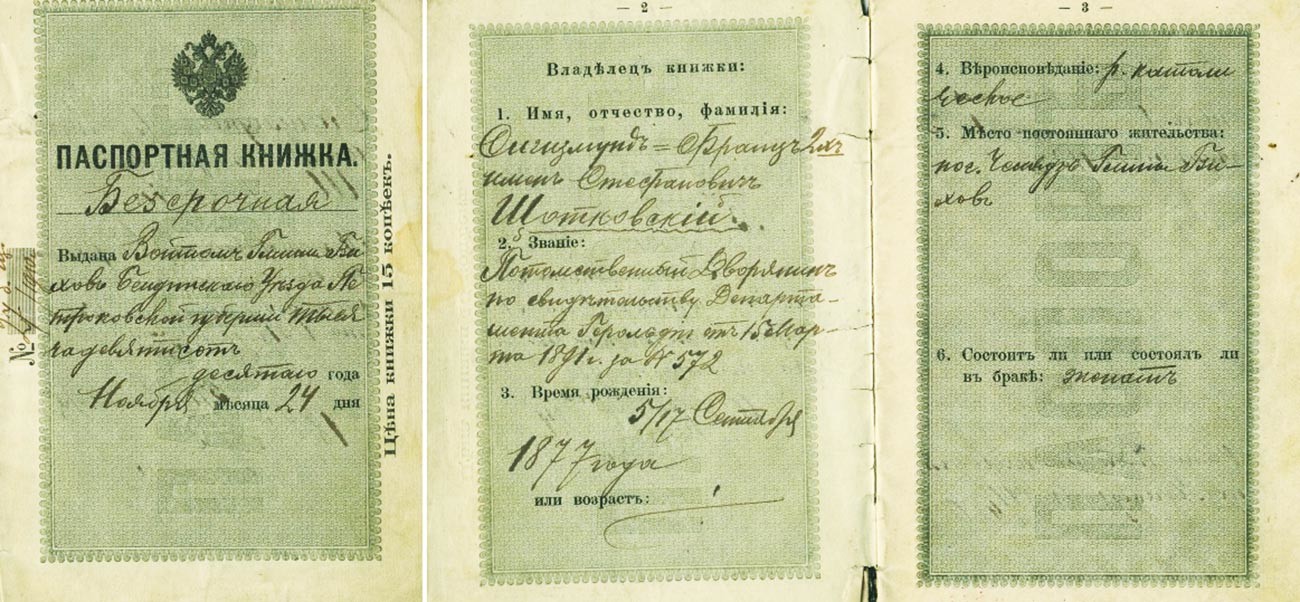 ПАСПОРТНАЯ КНИЖКА.
Безсрочная
Выдана Войтомъ Гмины
ховъ Бендинскаго Уѣзда Пе
троковской губерніи Тысяча
девятисотъ
десятаго года
Ноября мѣсяца 24 дня
№
Цѣна книжки 15 копѣекъ.
— 2 —
Владѣлецъ книжки:
1. Имя, отчество, фамилія:
Сигизмундъ=Францъ 2хъ
именъ Стефановичъ
Шотковскій.
2. Званіе:
Потомственный Дворянинъ
по свидѣтельству Департа-
мента Герольдіи отъ 15 Мар-
та 1891 г. за № 572
3. Время рожденія:
5/17 Сентября
1877 года
или возрастъ:
— 3 —
4. Вѣроисповѣданіе: р. католи
ческое
5. Мѣсто постояннаго жительства:
пос. Гмины
ховъ
6. Состоитъ ли или состоялъ ли
въ бракѣ: женатъ